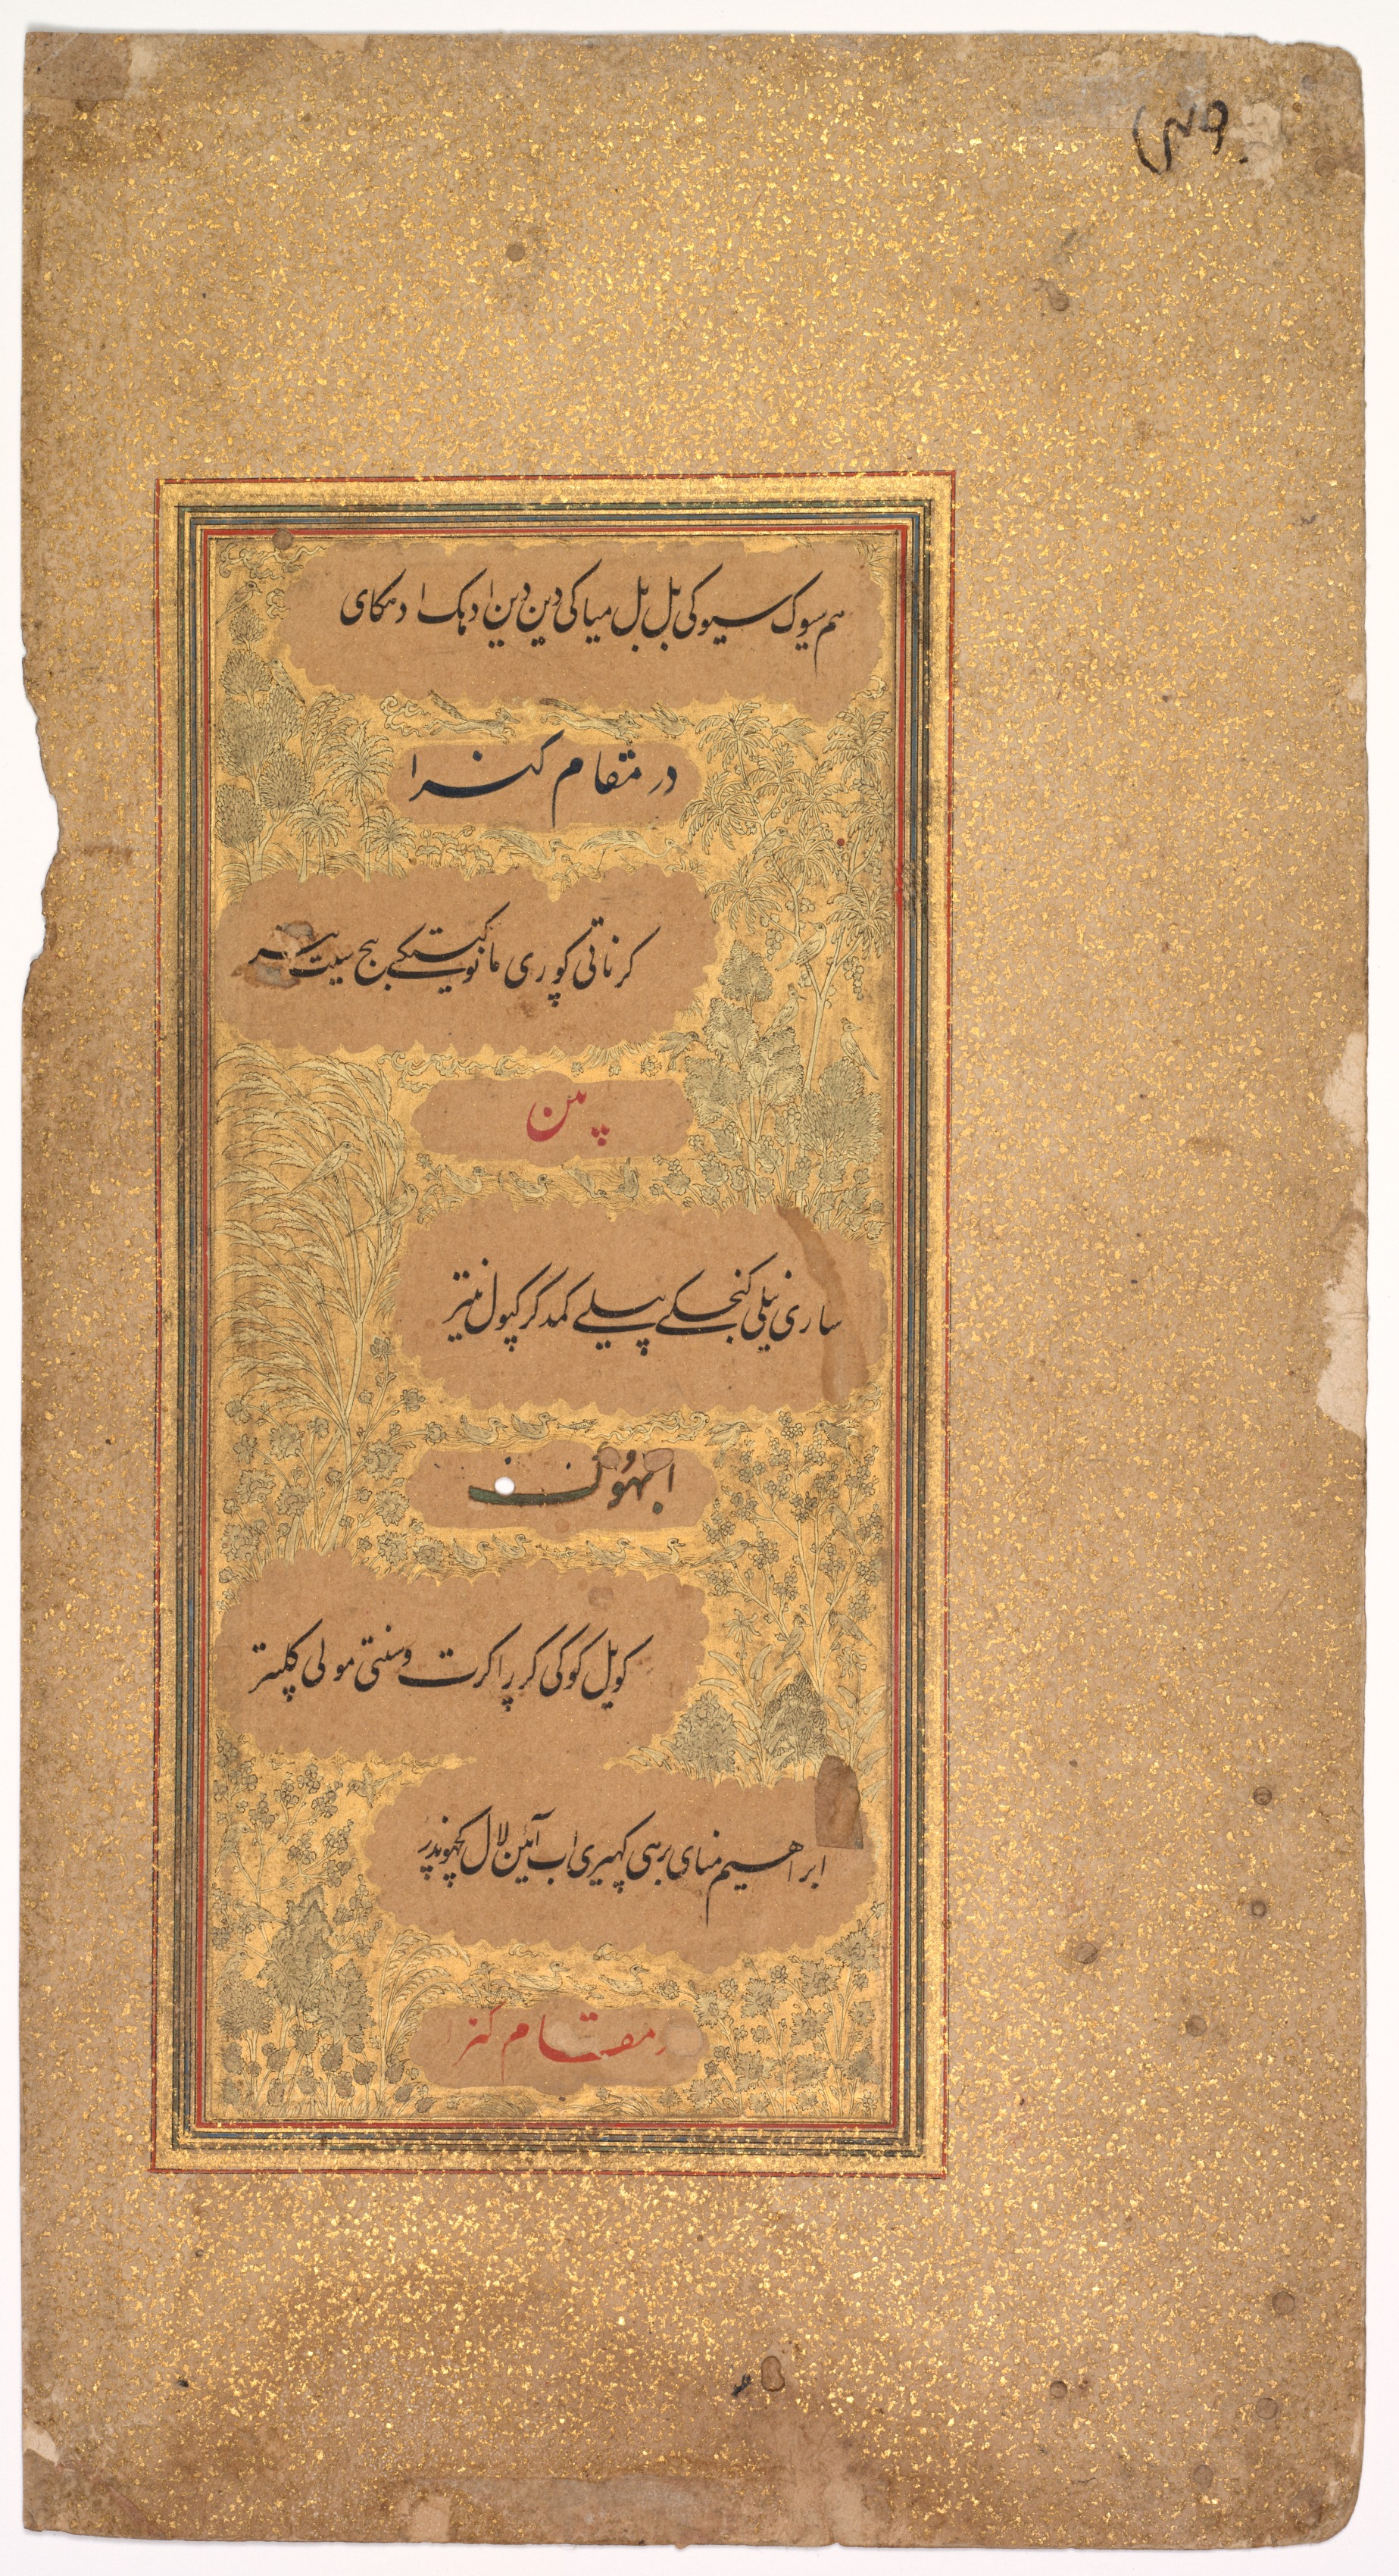 هم سیوک سیوکی بل بل میاکی دین دین ادہک ادہکای
در مقام کنرا
کرناتی کوری مانو
پین
ساری نیلی کنچکے پیلے کمدکر کپول نیتر
ابھوک
کویل کوکی کر پراکرت وسنتی مولی کلپتر
ابراهیم منای برهی کهیری اب آئین لال
در مقام کنرا